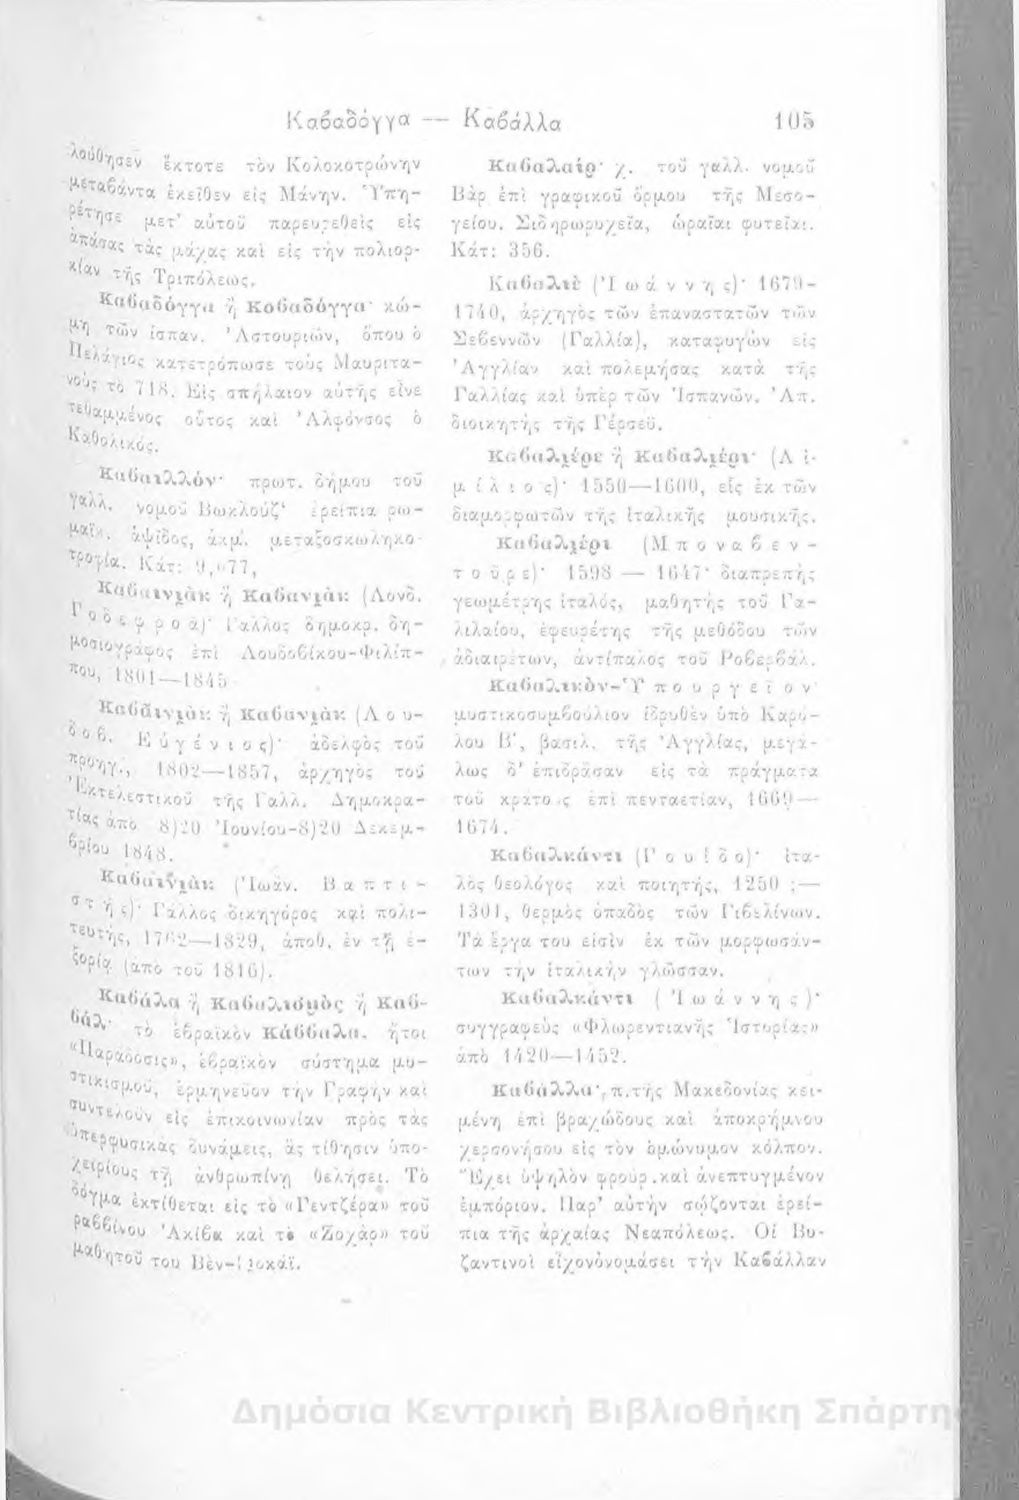 Καβαδόγγα — Καβάλλα 105
λούθησεν ἔκτοτε τὸν Κολοκοτρώνην
μεταβάντα ἐκεῖθεν εἰς Μάνην. Ὑπη-
ρέτησε μετ' αὐτοῦ παρευρεθεὶς εἰς
ἁπάσας τὰς μάχας καὶ εἰς τὴν πολιορ-
κίαν τῆς Τριπόλεως.
Καβαδόγγα ἢ Κοβαδόγγα· κώ-
μη τῶν ἱσπαν. Ἀστουριῶν, ὅπου ὁ
Πελάγιος κατετρόπωσε τοὺς Μαυριτα-
νοὺς τὸ 718. Εἰς σπήλαιον αὐτῆς εἶνε
τεθαμμένος οὗτος καὶ Ἀλφόνσος ὁ
Καθολικός.
Καβαιλλόν· πρωτ. δήμου τοῦ
γαλλ. νομοῦ Βωκλούζ· ἐρείπια ρω-
μαϊκ. ἁψῖδος, ἀκμ. μεταξοσκωληκο-
τροφία. Κάτ:
Καβαινιὰκ ἢ Καβανιὰκ (Λουδ.
Γοδεφροὰ)· Γάλλος δημοκρ. δη-
μοσιογράφος ἐπὶ Λουδοβίκου-Φιλίπ-
που, 1801—1845
Καβαινιὰκ ἢ Καβανιὰκ (Λου-
δοβ. Εὐγένιος)· ἀδελφὸς τοῦ
προηγ., 1802—1857, ἀρχηγὸς τοῦ
Ἐκτελεστικοῦ τῆς Γαλλ. Δημοκρα-
τίας ἀπὸ 8)20 Ἰουνίου-8)20 Δεκεμ-
βρίου 1848.
Καβαινιὰκ (Ἰωάν. Βαπτι-
στὴς)· Γάλλος δικηγόρος καὶ πολι-
τευτής, 1762—1829, ἀποθ. ἐν τῇ ἐ-
ξορίᾳ (ἀπὸ τοῦ 1816).
Καβάλα ἢ Καβαλισμὸς ἢ Καβ-
βάλ· τὸ ἑβραϊκὸν Κάββαλα, ἤτοι
«Παράδοσις», ἑβραϊκὸν σύστημα μυ-
στικισμοῦ, ἑρμηνεῦον τὴν Γραφὴν καὶ
συντελοῦν εἰς ἐπικοινωνίαν πρὸς τὰς
ὑπερφυσικὰς δυνάμεις, ἃς τίθησιν ὑπο-
χειρίους τῇ ἀνθρωπίνῃ θελήσει. Τὸ
δόγμα ἐκτίθεται εἰς τὸ «Γεντζέρα» τοῦ
ραββίνου Ἀκίβα καὶ τὸ «Ζοχὰρ» τοῦ
μαθητοῦ του Βὲν-Ἰοκάϊ.
Καβαλαίρ· χ. τοῦ γαλλ. νομοῦ
Βὰρ ἐπὶ γραφικοῦ ὅρμου τῆς Μεσο-
γείου. Σιδηρωρυχεῖα, ὡραῖαι φυτεῖαι.
Κάτ: 356.
Καβαλιὲ (Ἰωάννης)· 1679-
1740, ἀρχηγὸς τῶν ἐπαναστατῶν τῶν
Σεβεννῶν (Γαλλία), καταφυγὼν εἰς
Ἀγγλίαν καὶ πολεμήσας κατὰ τῆς
Γαλλίας καὶ ὑπὲρ τῶν Ἱσπανῶν. Ἀπ.
διοικητὴς τῆς Γέρσεϋ.
Καβαλιέρε ἢ Καβαλιέρι· (Αἰ-
μίλιος)· 1550—1600, εἷς ἐκ τῶν
διαμορφωτῶν τῆς ἰταλικῆς μουσικῆς.
Καβαλιέρι (Μποναβεν-
τοῦρε)· 1598 — 1647· διαπρεπὴς
γεωμέτρης ἰταλός, μαθητὴς τοῦ Γα-
λιλαίου, ἐφευρέτης τῆς μεθόδου τῶν
ἀδιαιρέτων, ἀντίπαλος τοῦ Ροβερβάλ.
Καβαλικὸν-Ὑπουργεῖον·
μυστικοσυμβούλιον ἱδρυθὲν ὑπὸ Καρό-
λου Β', βασιλ. τῆς Ἀγγλίας, μεγά-
λως δ' ἐπιδρᾶσαν εἰς τὰ πράγματα
τοῦ κράτους ἐπὶ πενταετίαν, 1669—
1674.
Καβαλκάντι (Γουίδο)· ἰτα-
λὸς θεολόγος καὶ ποιητής, 1250 ;—
1301, θερμὸς ὀπαδὸς τῶν Γιβελίνων.
Τὰ ἔργα του εἰσὶν ἐκ τῶν μορφωσάν-
των τὴν ἰταλικὴν γλῶσσαν.
Καβαλκάντι (Ἰωάννης)·
συγγραφεὺς «Φλωρεντιανῆς Ἱστορίας»
ἀπὸ 1420—1452.
Καβάλλα·,π.τῆς Μακεδονίας κει-
μένη ἐπὶ βραχώδους καὶ ἀποκρήμνου
χερσονήσου εἰς τὸν ὁμώνυμον κόλπον.
Ἔχει ὑψηλὸν φρούρ.καὶ ἀνεπτυγμένον
ἐμπόριον. Παρ' αὐτὴν σῴζονται ἐρεί-
πια τῆς ἀρχαίας Νεαπόλεως. Οἱ Βυ-
ζαντινοὶ εἶχονὀνομάσει τὴν Καβάλλαν
Δημόσια Κεντρική Βιβλιοθήκη Σπάρτης